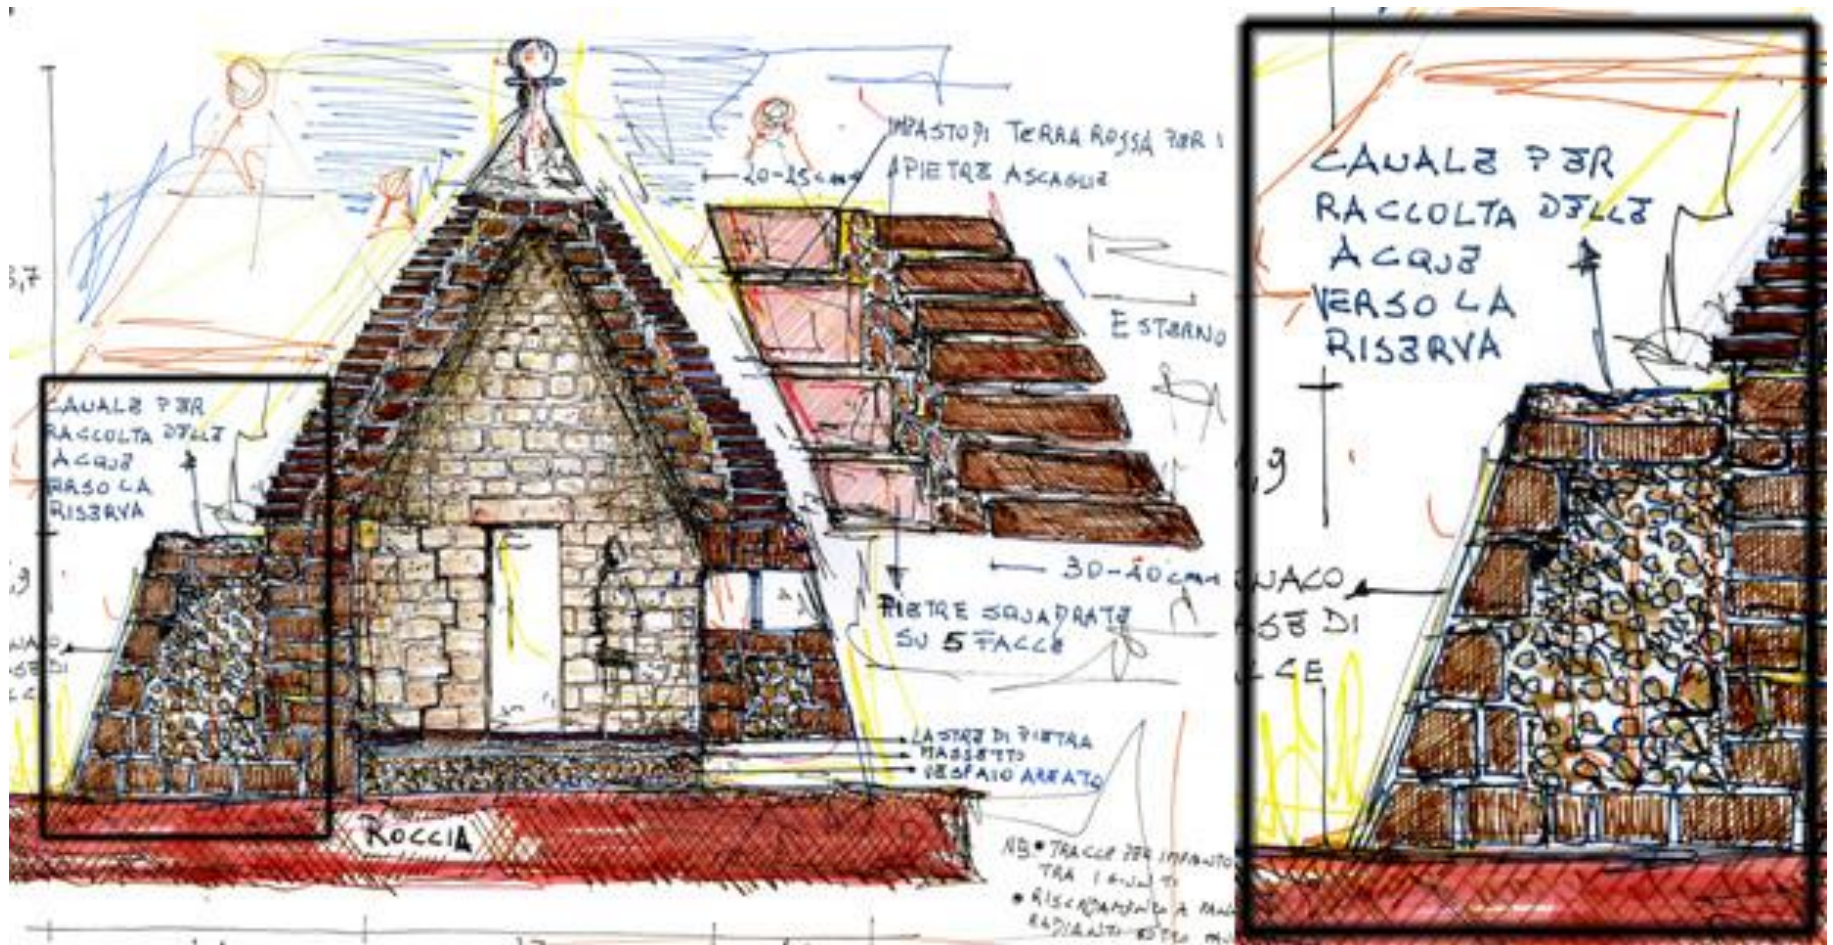 IMPASTO DI TERRA ROSSA PER I
A PIETRE A SCAGLIE
20-25 cm
3,7
ESTERNO
CANALE PER
RACCOLTA DELLE
ACQUE
VERSO LA
RISERVA
30-40 cm
PIETRE SQUADRATE
SU 5 FACCE
LASTRE DI PIETRA
MASSETTO
VESPAIO AREATO
ROCCIA
NB. • TRACCE PER IMPIANTO
TRA I GIUNTI
• RISCALDAMENTO A
CANALE PER
RACCOLTA DELLE
ACQUE
VERSO LA
RISERVA
,9
NACO
ASE DI
LCE